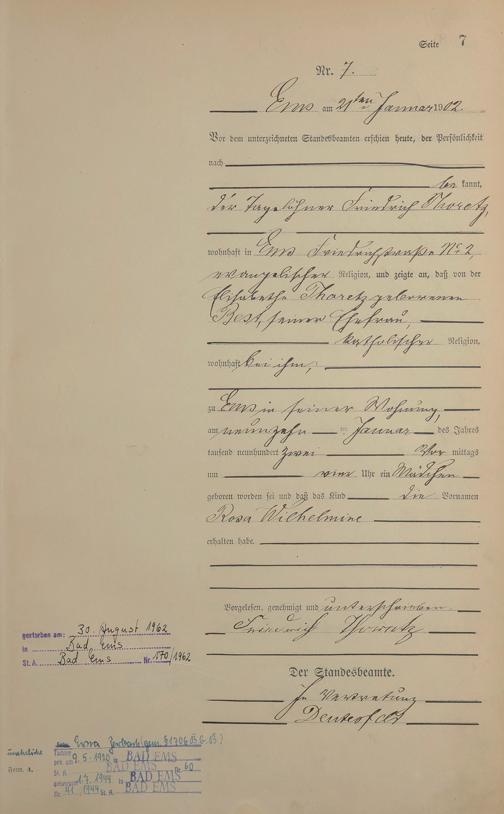 Seite 7
Nr. 7.
Ems am 21ten Januar 1902.
Vor dem unterzeichneten Standesbeamten erschien heute, der Persönlichkeit
nach
be kannt,
der Tagelöhner Friedrich Thoretz,
wohnhaft in Ems Friedrichstraße No 2,
evangelischer Religion, und zeigte an, daß von der
Elisabethe Thoretz geborenen
Best, seiner Ehefrau,
katholischer Religion,
wohnhaft bei ihm,
zu Ems in seiner Wohnung,
am neunzehn ten Januar des Jahres
tausend neunhundert zwei Vor mittags
um vier Uhr ein Mädchen
geboren worden sei und daß das Kind die Vornamen
Rosa Wilhelmine
erhalten habe.
Vorgelesen, genehmigt und unterschrieben
Friedrich
Der Standesbeamte.
In Vertretung
gestorben am: 30. August 1962
in Bad Ems
St. A. Bad Ems Nr. 170/1962
(gem. §1706 B.G.B.)
uneheliche Tochter
geb. am 9.5.1920 in BAD EMS
St. A. BAD EMS Nr. 60
1944 in BAD EMS
Nr. 41/1944 St. A. BAD EMS